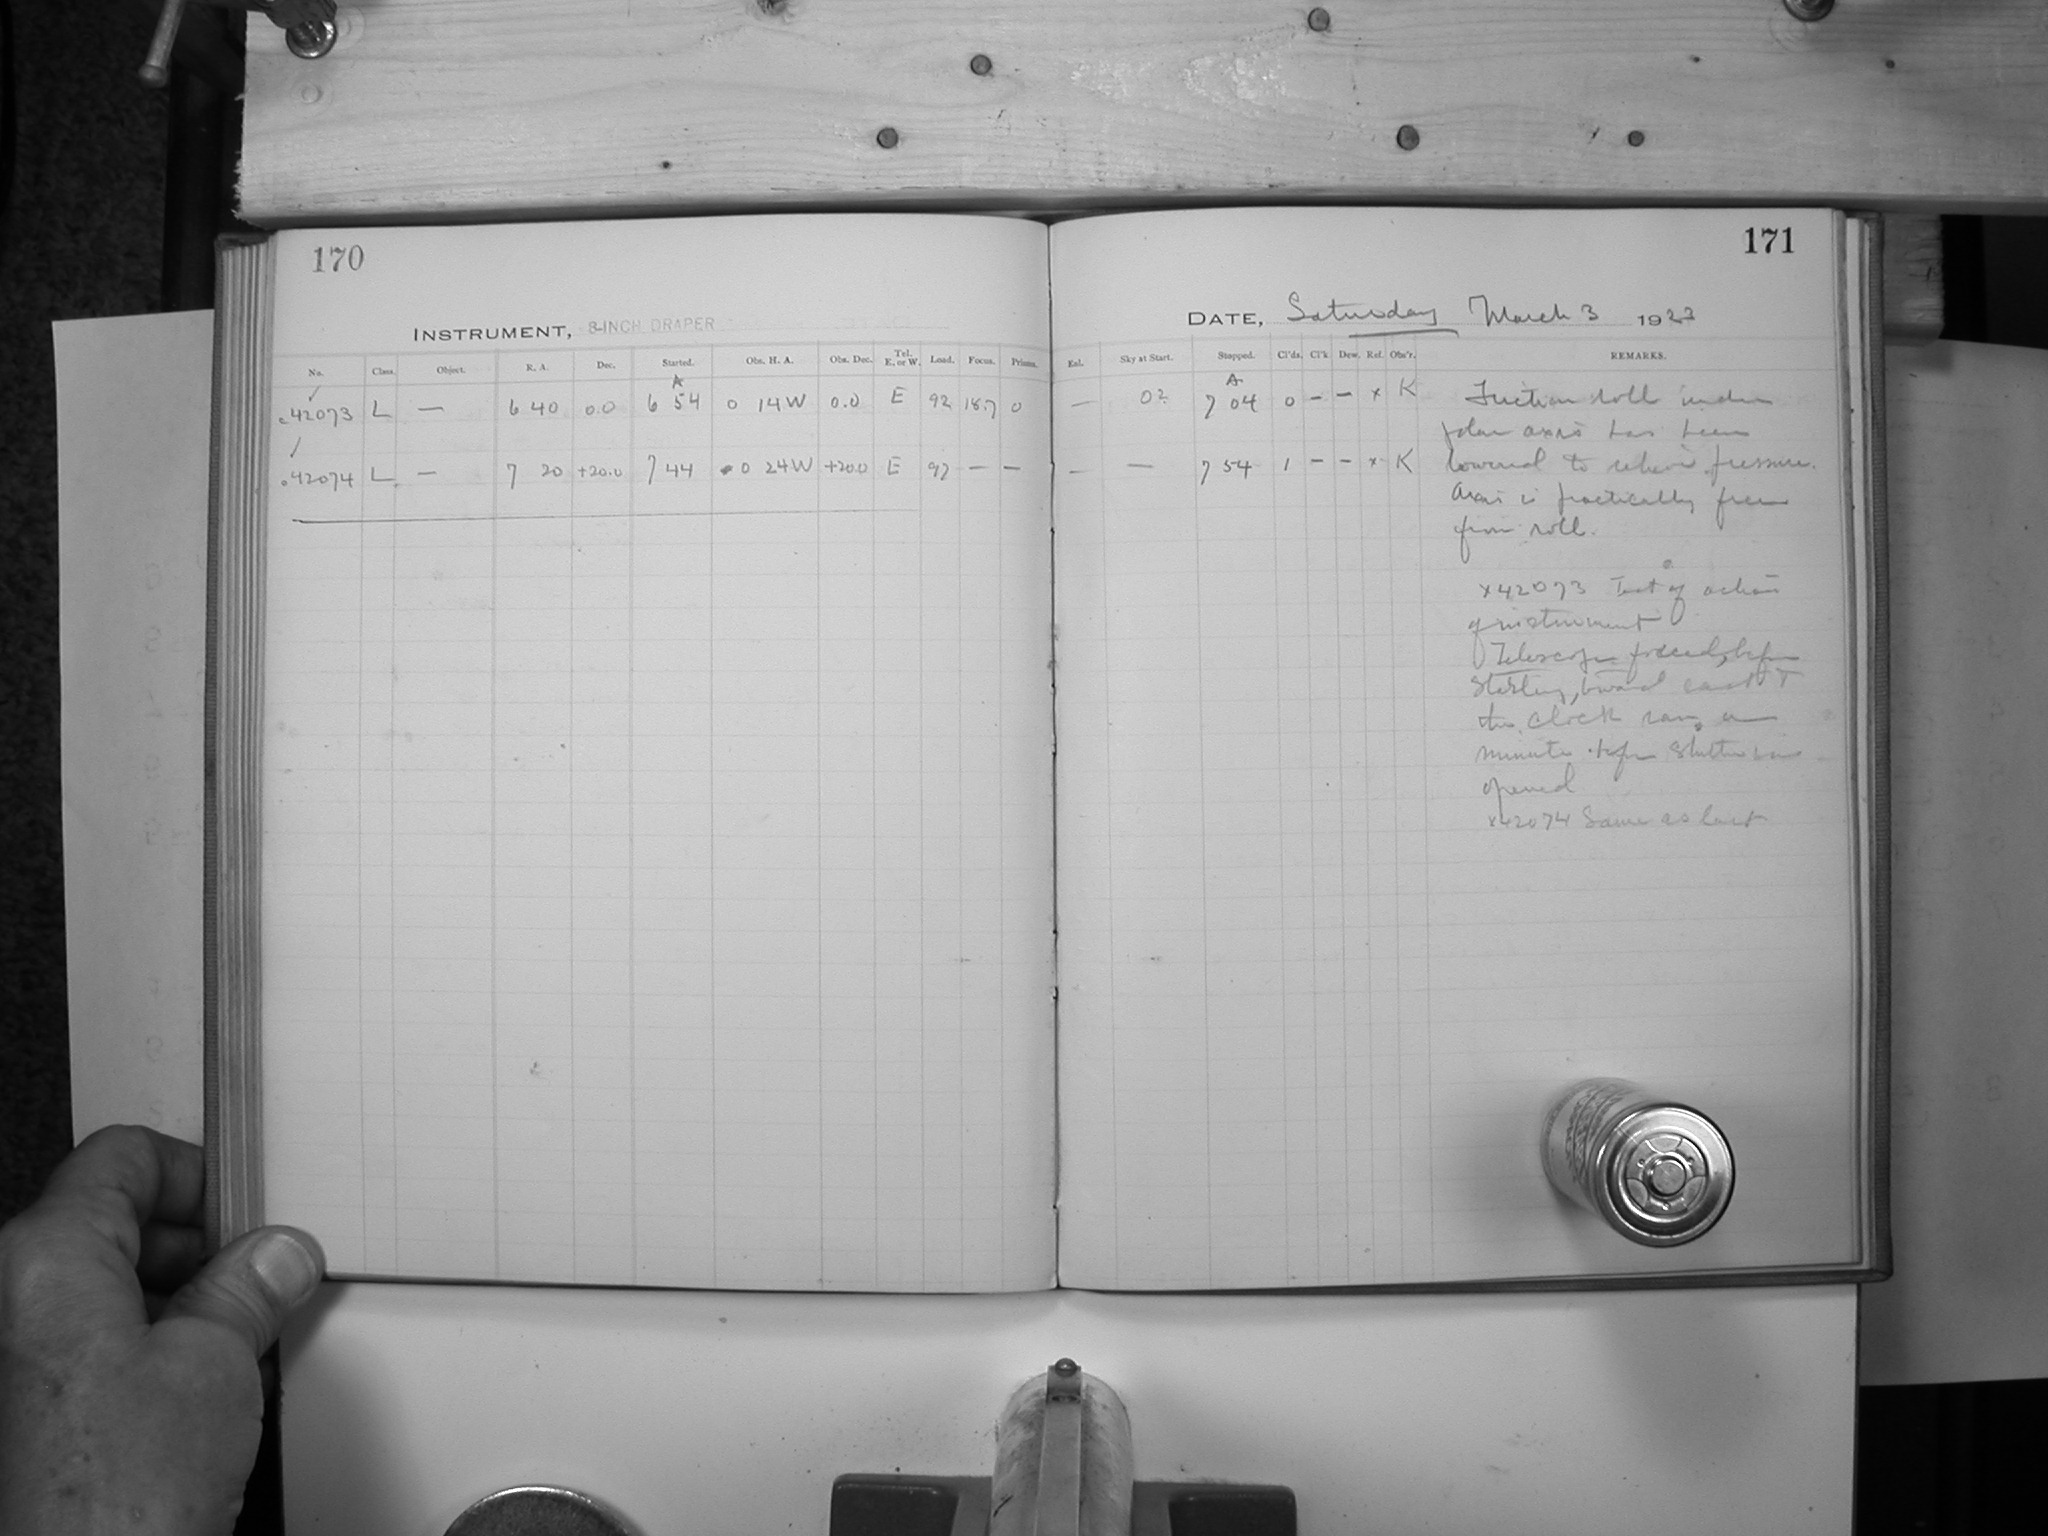 170
INSTRUMENT, 8-INCH DRAPER
No. Class. Object. R. A. Dec. Started. Obs. H. A. Obs. Dec. Tel. E. or W. Load. Focus. Prisms.
A
42073 L — 6 40 0.0 6 54 0 14W 0.0 E 92 18.7 0
42074 L — 7 20 +20.0 7 44 0 24W +20.0 E 92 — —
171
DATE, Saturday March 3 1923
Exl. Sky at Start. Stopped. Cl'ds. Cl'k Dew. Ref. Obs'r. REMARKS.
A
— 02 7 04 0 – – x K
— — 7 54 1 – – x K
Friction roll under
polar axis has been
lowered to relieve pressure.
Axis is practically free
from roll.
x42073 Test of action
of instrument
Telescope forced, before
starting, toward east &
the clock ran a
minute before shutter was
opened
x42074 Same as last